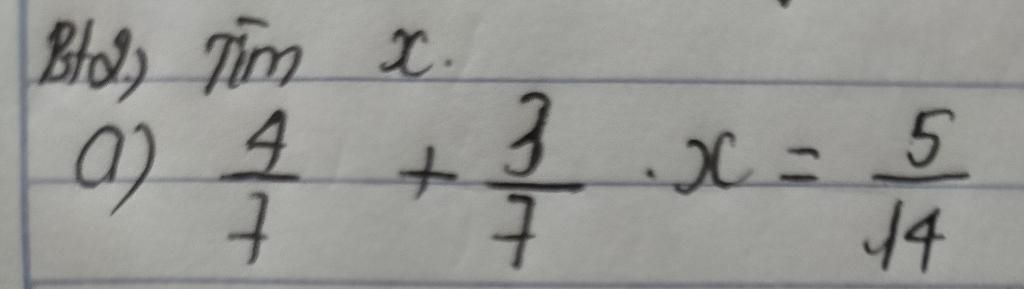 Bt2.) Tìm x.
a) 4/7 + 3/7 . x = 5/14